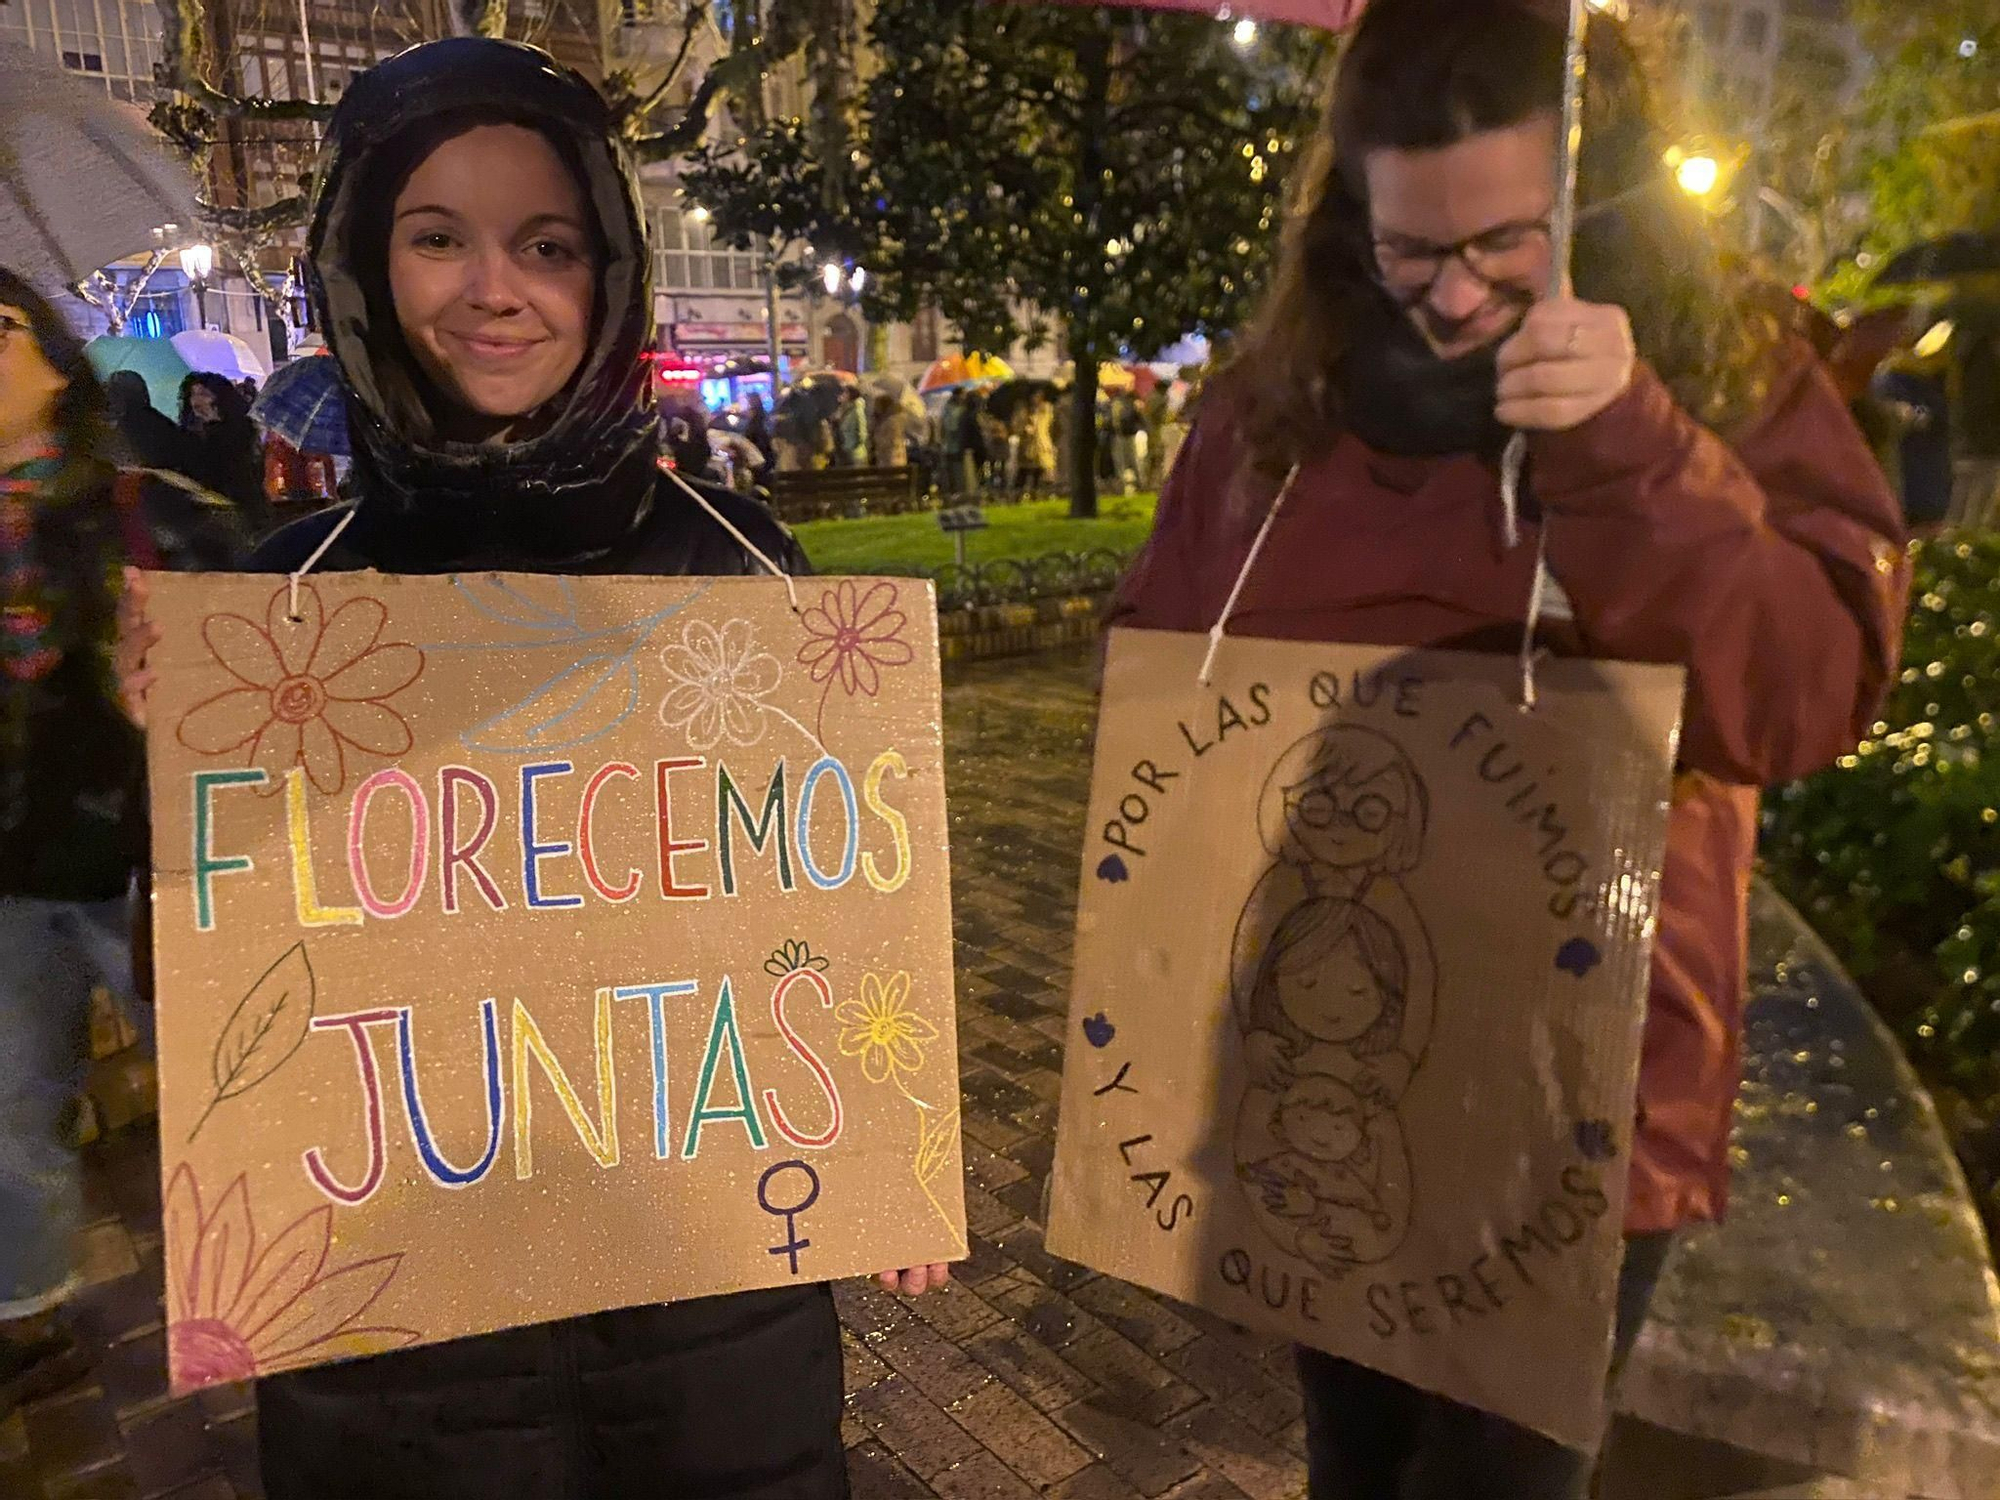 FLORECEMOS
JUNTAS
POR LAS QUE FUIMOS
Y LAS QUE SEREMOS